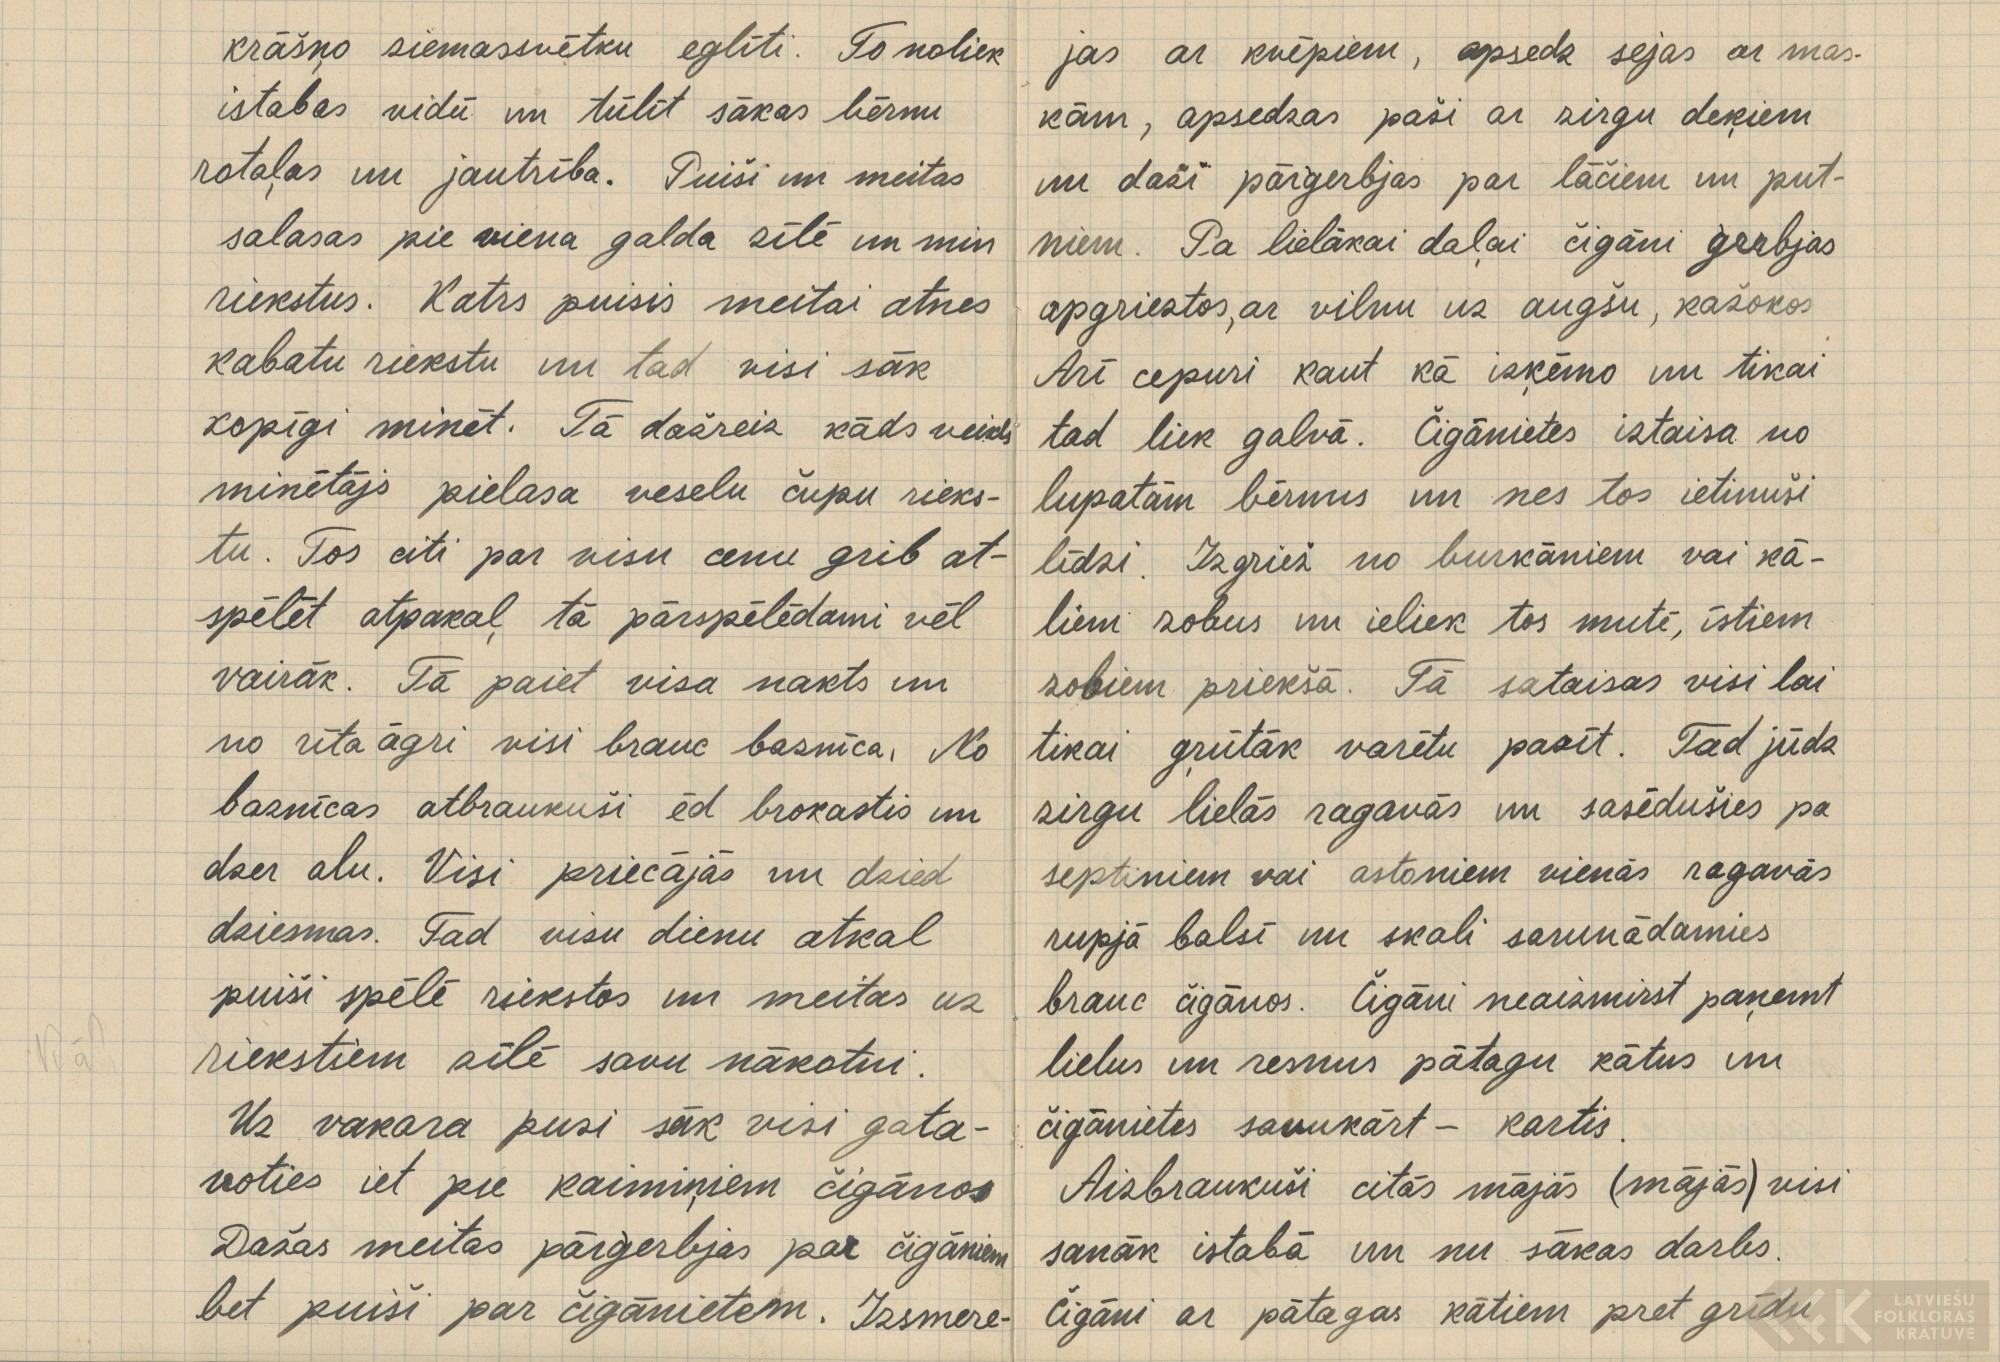 krāšņo ziemassvētku eglīti. To noliek
istabas vidū un tūlīt sākas bērnu
rotaļas un jautrība. Puiši un meitas
salasas pie viena galda zīlē un min
riekstus. Katrs puisis meitai atnes
kabatu riekstu un tad visi sāk
kopīgi minēt. Tā dažreiz kāds veikls
minētājs pielasa veselu čupu rieks-
tu. Tos citi par visu cenu grib at-
spēlēt atpakaļ, tā pārspēlēdami vēl
vairāk. Tā paiet visa nakts un
no rīta āgri visi brauc baznīca. No
baznīcas atbraukuši ēd brokastis un
dzer alu. Visi priecājās un dzied
dziesmas. Tad visu dienu atkal
puiši spēlē riekstos un meitas uz
riekstiem zīlē savu nākotni.
Uz vakara pusi sāk visi gata-
voties iet pie kaimiņiem čigānos
Dažas meitas pārģerbjas par čigāniem
bet puiši par čigānietem. Izsmere-
jas ar kvēpiem, apsedz sejas ar mas-
kām, apsedzas paši ar zirgu deķiem
un daži pārģerbjas par lāčiem un put-
niem. Pa lielākai daļai čigāni ģerbjas
apgrieztos, ar vilnu uz augšu, kažokos
Arī cepuri kaut kā izķēmo un tikai
tad liek galvā. Čigānietes iztaisa no
lupatām bērnus un nes tos ietinuši
līdzi. Izgriež no burkāniem vai kā-
ļiem zobus un ieliek tos mutē, īstiem
zobiem priekšā. Tā sataisas visi lai
tikai gŗūtāk varētu pazīt. Tad jūdz
zirgu lielās ragavās un sasēdušies pa
septiniem vai astoniem vienās ragavās
rupjā balsī un skali sarunādamies
brauc čigānos. Čigāni neaizmirst paņemt
lielus un resnus pātagu kātus un
čigānietes savukārt – kartis.
Aizbraukuši citās mājās (mājās) visi
sanāk istabā un nu sākas darbs.
Čigāni ar pātagas kātiem pret grīdu
LATVIEŠU
FOLKLORAS
KRĀTUVE